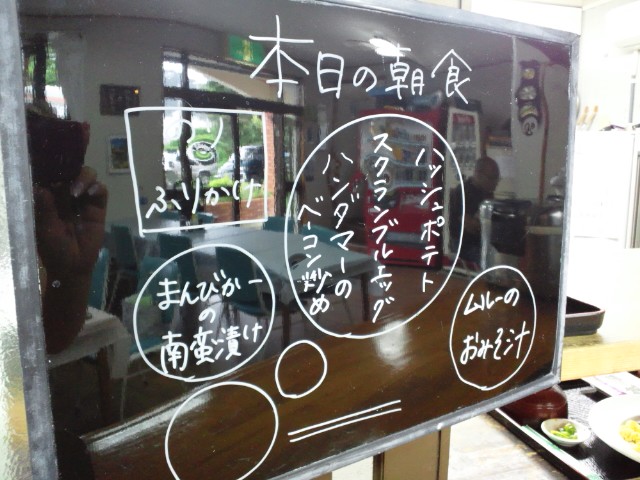 本日の朝食
ふりかけ
ハッシュポテト
スクランブルエッグ
ハンダマーの
ベーコン炒め
まんびかー
の
南蛮漬け
ムルーの
おみそ汁